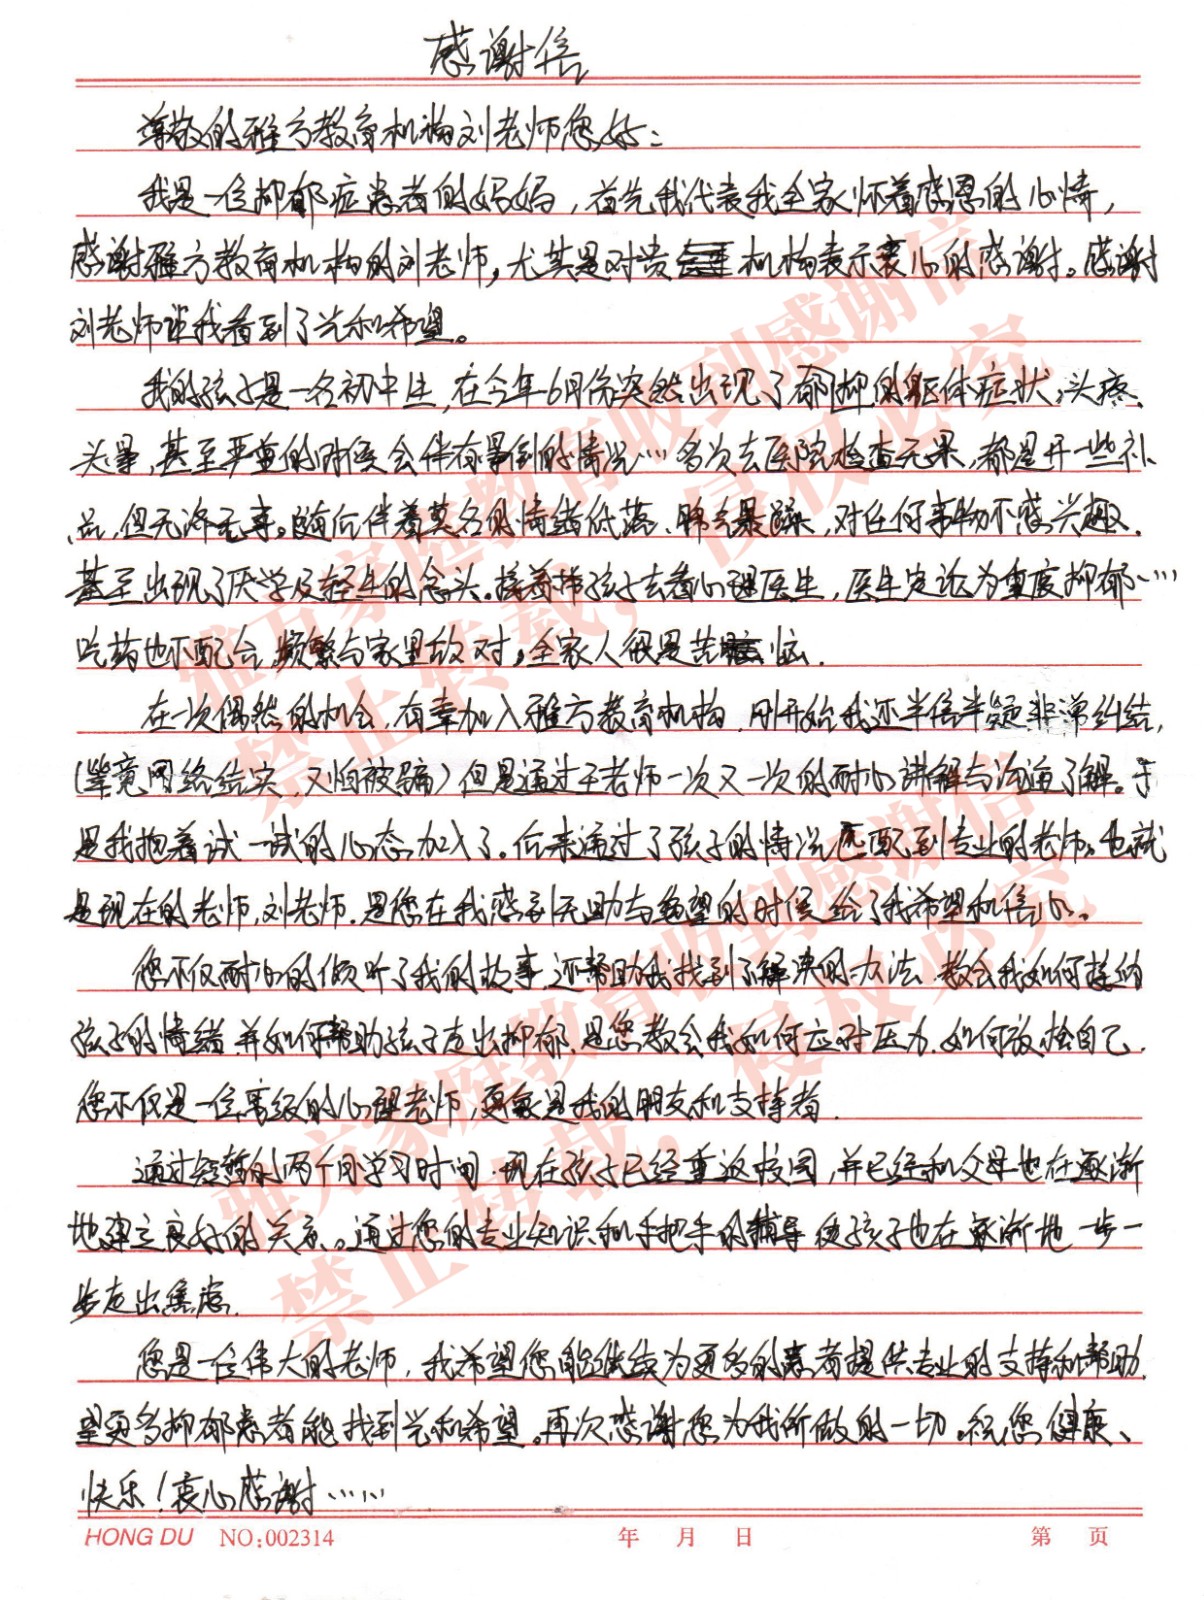 感谢信
尊敬的雅方教育机构刘老师您好：
我是一位抑郁症患者的妈妈，首先我代表我全家怀着感恩的心情，
感谢雅方教育机构的刘老师，尤其是对贵机构表示衷心的感谢。感谢
刘老师让我看到了光和希望。
我的孩子是一名初中生，在今年6月份突然出现了郁抑的躯体症状，头疼、
头晕，甚至严重的时侯会伴有晕倒的情况…多次去医院检查无果，都是开一些补
品，但无济无事。随后伴着莫名的情绪低落、脾气暴躁，对任何事物不感兴趣，
甚至出现了厌学及轻生的念头。接着带孩子去看心理医生，医生定论为重度抑郁……
吃药也不配合，频繁与家里敌对，全家人很是苦恼.
在一次偶然的机会，有幸加入雅方教育机构，刚开始我还半信半疑非常纠结，
(毕竟网络结实，又怕被骗)但是通过王老师一次又一次的耐心讲解与沟通了解。于
是我抱着试一试的心态加入了。后来通过了孩子的情况匹配到专业的老师。也就
是现在的老师，刘老师.是您在我感到无助与绝望的时侯给了我希望和信心。
您不仅耐心的倾听了我的故事，还帮助我找到了解决的办法，教会我如何接纳
孩子的情绪，并如何帮助孩子走出抑郁，是您教会我如何应对压力，如何放松自己.
您不仅是一位高级的心理老师，更象是我的朋友和支持者.
通过短暂的两个月学习时间，现在孩子已经重返校园，并已经和父母也在逐渐
地建立良好的关系。通过您的专业知识和手把手的辅导使孩子也在逐渐地一步一
步走出焦虑.
您是一位伟大的老师，我希望您能继续为更多的患者提供专业的支持和帮助.
望更多抑郁患者能找到光和希望。再次感谢您为我所做的一切。祝您健康、
快乐！衷心感谢……
HONG DU NO:002314 年 月 日 第 页
雅方家庭教育收到感谢信
禁止转载，侵权必究
雅方家庭教育收到感谢信
禁止转载，侵权必究